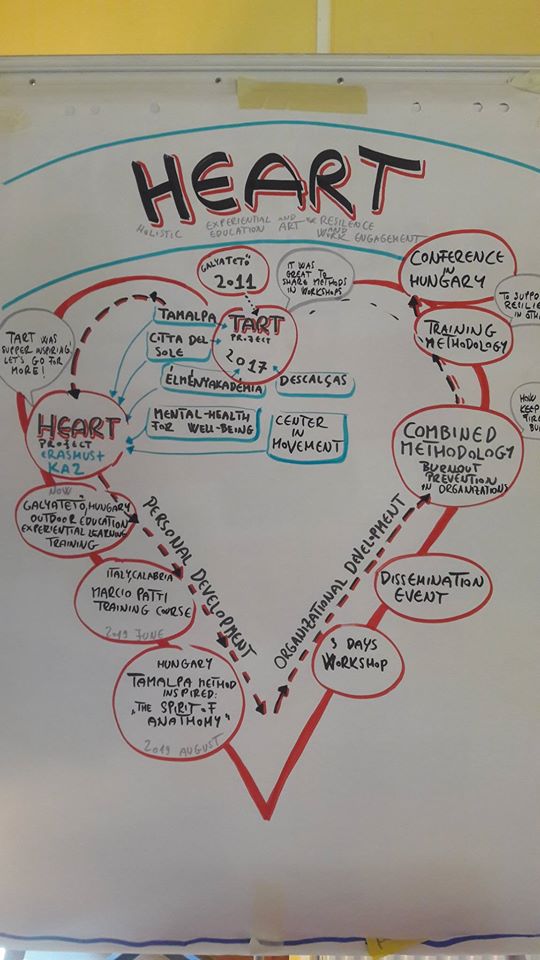 HEART
HOLISTIC EXPERIENTIAL AND ART FOR RESILENCE
EDUCATION AND WORK ENGAGEMENT
GALYATETŐ
2011
IT WAS
GREAT TO
SHARE METHODS
IN WORKSHOPS
TART
PROJECT
2017
TAMALPA
CITTA DEL
SOLE
ÉLMÉNYAKADÉMIA
DESCALÇAS
MENTAL-HEALTH
FOR WELL-BEING
CENTER
IN
MOVEMENT
TART WAS
SUPPER INSPIRING,
LET'S GO FOR
MORE!
HEART
PROJECT
ERASMUS+
KA2
NOW
GALYATETŐ, HUNGARY
OUTDOOR EDUCATION
EXPERIENTIAL LEARNING
TRAINING
ITALY, CALABRIA
MARCIO PATTI
TRAINING COURSE
2019 JUNE
HUNGARY
TAMALPA METHOD
INSPIRED:
„THE SPIRIT OF
ANATHOMY"
2019 AUGUST
PERSONAL DEVELOPMENT
ORGANIZATIONAL DEVELOPMENT
3 DAYS
WORKSHOP
DISSEMINATION
EVENT
COMBINED
METHODOLOGY
BURNOUT
PREVENTION
IN ORGANIZATIONS
HOW
KEEP
TRAINING
METHODOLOGY
TO SUPPO
RESILIE
IN OTH
CONFERENCE
IN
HUNGARY